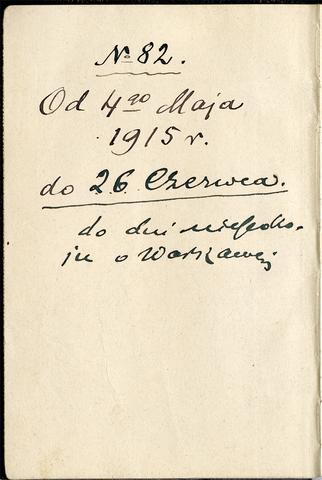 № 82.
Od 4go Maja
1915 r.
do 26 Czerwca.
do dni niepoko-
ju o Warszawę